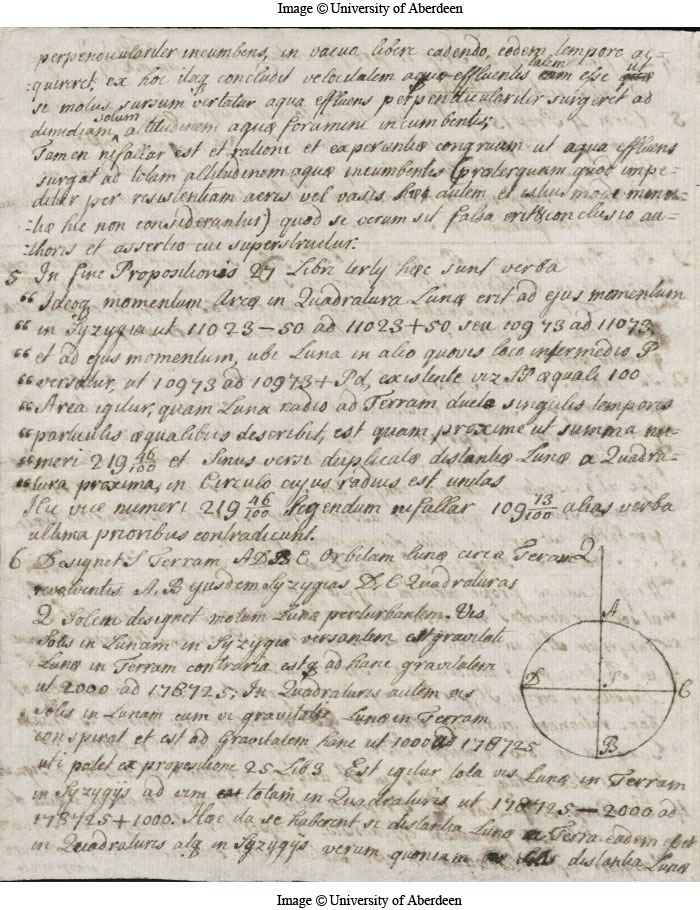 Image © University of Aberdeen
perpendiculariter incumbens, in vacuo libere cadendo, eodem tempore ac-
:quireret, ex hoc itaq concludis velocitatem aquæ effluentis talem esse ut
si motus sursum vertatur aqua effluens perpendiculariter surgeret ad
dimidiam solum altitudinem aquæ foramini incumbentis;
Tamen ni fallar est et rationi et experientiæ congruum ut aqua effluens
surgat ad totam altitudinem aquæ incumbentis (præterquam quod impe-
ditur per resistentiam aeris vel vasis hæc autem et istius modi minu-
:tiæ hic non considerantur) quod si verum sit falsa erit & conclusio au-
:thoris et assertio cui superstruitur.
5 In fine Propositionis 27 Libri tertij hæc sunt verba
“ Ideoq momentum Areæ in Quadratura Lunæ erit ad ejus momentum
“ in Syzygia ut 11023-50 ad 11023+50 seu 10973 ad 11073,
“ et ad ejus momentum, ubi Luna in alio quovis loco intermedio P
“ versatur, ut 10973 ad 10973+Pd, existente viz æquali 100
“ Area igitur, quam Luna radio ad Terram ducto singulis temporis
“ particulis æqualibus describit, est quam proxime ut summa nu-
“ meri 219 46/100 et Sinus versi duplicatæ distantiæ Lunæ a Quadra-
“ tura proxima, in Circulo cujus radius est unitas
Hic vice numeri 219 46/100 legendum ni fallar 109 73/100 alias verba
ultima prioribus contradicunt.
6 Designet S Terram, ADBC Orbitam Lunæ circa Teram
revolventis A, B ejusdem Syzygias D, C Quadraturas
Q Solem designet motum Lunæ perturbantem. Vis
Solis in Lunam in Syzygia versantem est gravitati
Lunæ in Terram contraria estq ad hanc gravitatem
ut 2000 ad 178725; In Quadraturis autem vis
Solis in Lunam cum vi gravitatis Lunæ in Terram
conspirat et est ad Gravitatem hanc ut 1000 ad 178725
uti patet ex propositione 25 Lib 3 Est igitur tota vis Lunæ in Terram
in Syzygijs ad vim totam in Quadraturis ut 178725-2000 ad
178725+1000. Hæc ita se haberent si distantia Lunæ a Terra eadem esset
in Quadraturis atq in Syzygijs verum quoniam distantia Lunæ
Q
A
D
S
C
B
Image © University of Aberdeen